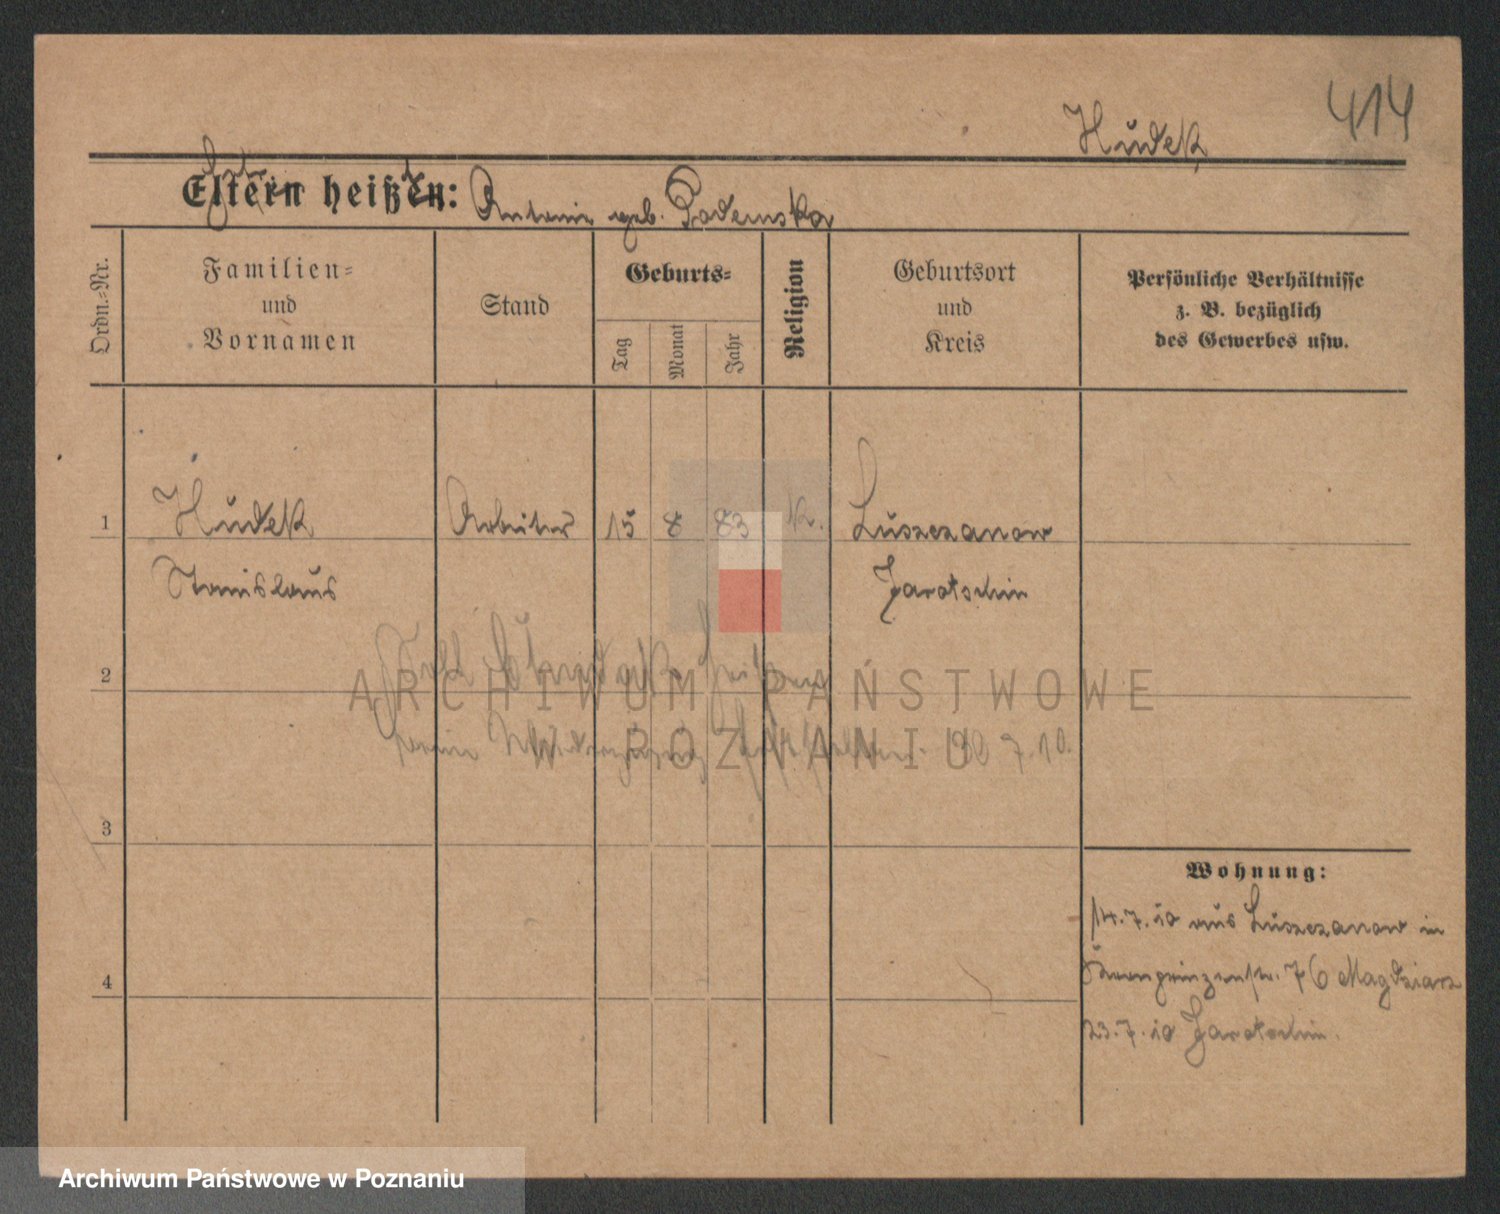 414
Hudek
Eltern heißen: Antonie geb. Pademska
Ordn.-Nr.
Familien-
und
Vornamen
Stand
Geburts-
Tag
Monat
Jahr
Religion
Geburtsort
und
Kreis
Persönliche Verhältnisse
z. B. bezüglich
des Gewerbes usw.
1 Hudek Arbeiter 15 8 83 k. Luszczanow
Stanislaus Jarotschin
2
ARCHIWUM PAŃSTWOWE
W POZNANIU
30 7. 10.
3
Wohnung:
14.7.10 aus Luszczanow in
Kronprinzenstr. 76 Magdziarz
4
23.7.10 Jarotschin.
Archiwum Państwowe w Poznaniu